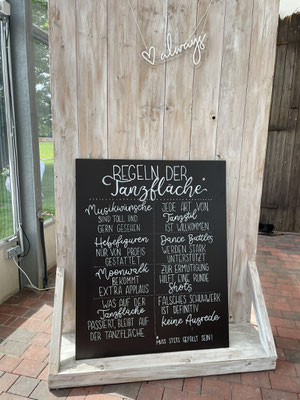 always
REGELN DER
Tanzfläche*
Musikwünsche
SIND TOLL UND
GERN GESEHEN
Hebefiguren
NUR VON PROFIS
GESTATTET
Moonwalk
BEKOMMT
EXTRA APPLAUS
WAS AUF DER
Tanzfläche
PASSIERT, BLEIBT AUF
DER TANZFLÄCHE
JEDE ART VON
Tanzstil
IST WILLKOMMEN
Dance Battles
WERDEN STARK
UNTERSTÜTZT
ZUR ERMUTIGUNG
HILFT EINE RUNDE
Shots
FALSCHES SCHUHWERK
IST DEFINITIV
keine Ausrede
* MUSS STETS GEFÜLLT SEIN!